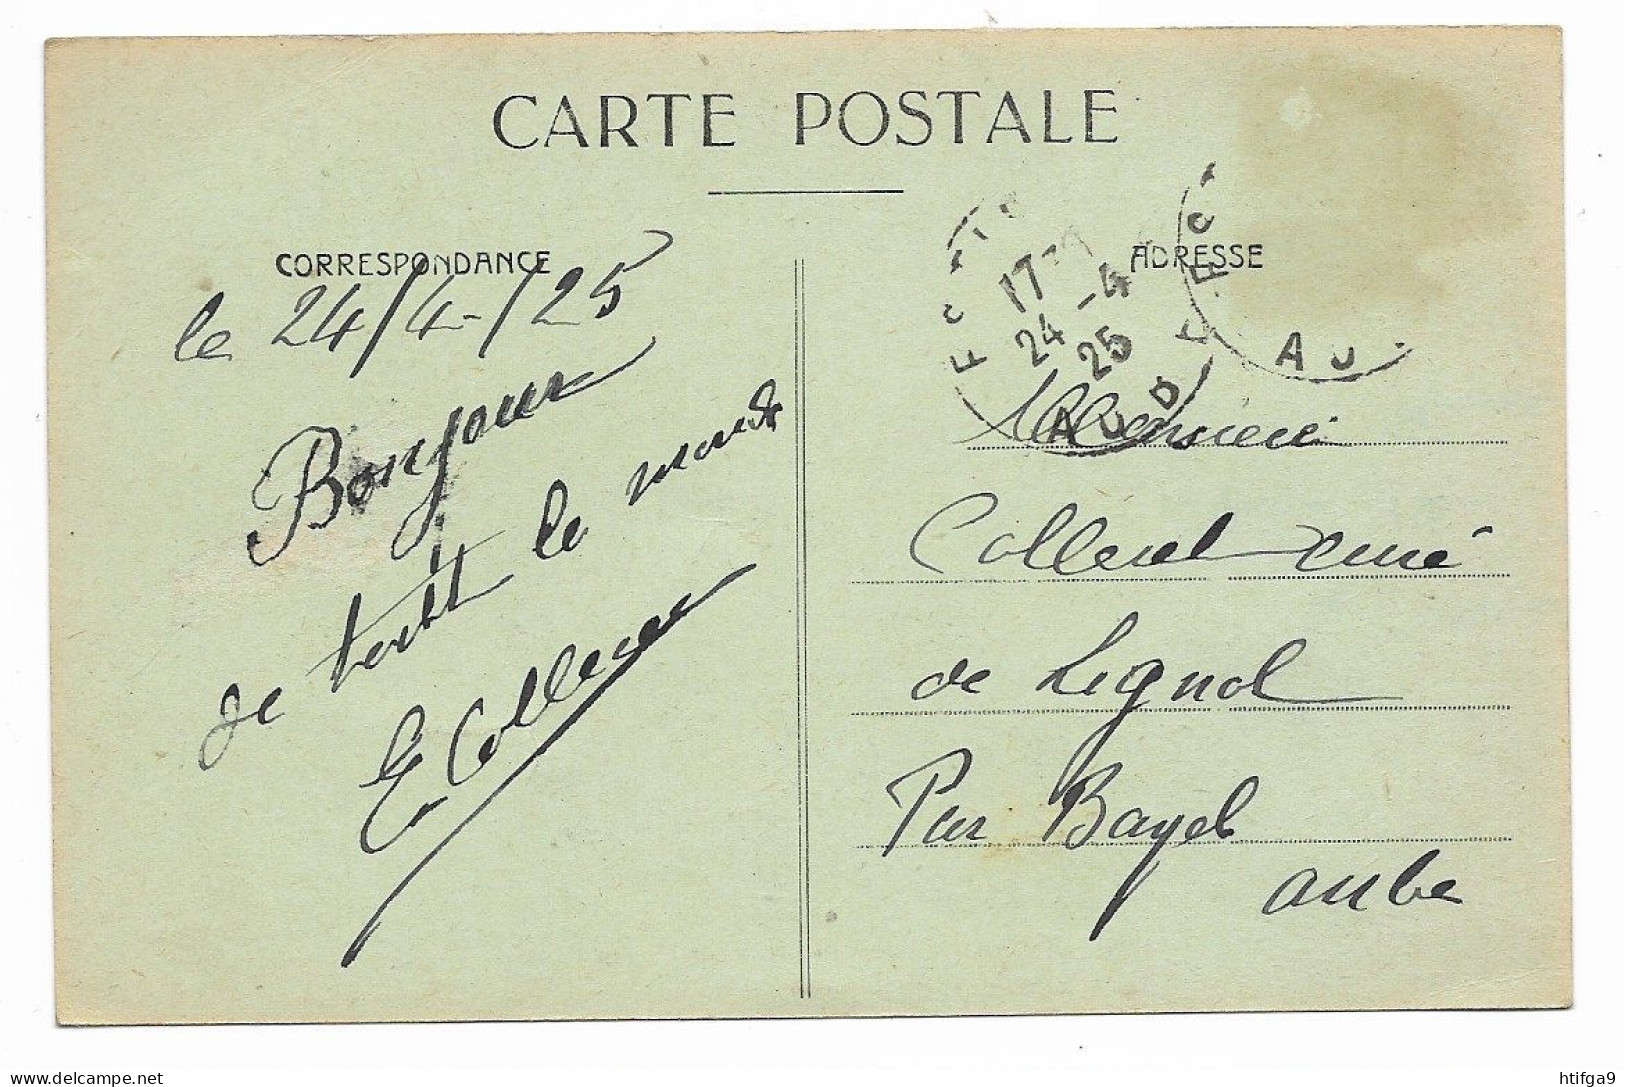 CARTE POSTALE
CORRESPONDANCE
le 24/4-/25
Bonjour
de toutt le monde
E Colleret
ADRESSE
17
24 -4
25
AUDE
AU
Monsieur
Colleret curé
de Lignol
Par Bayel
aube
delcampe.net
htifga9